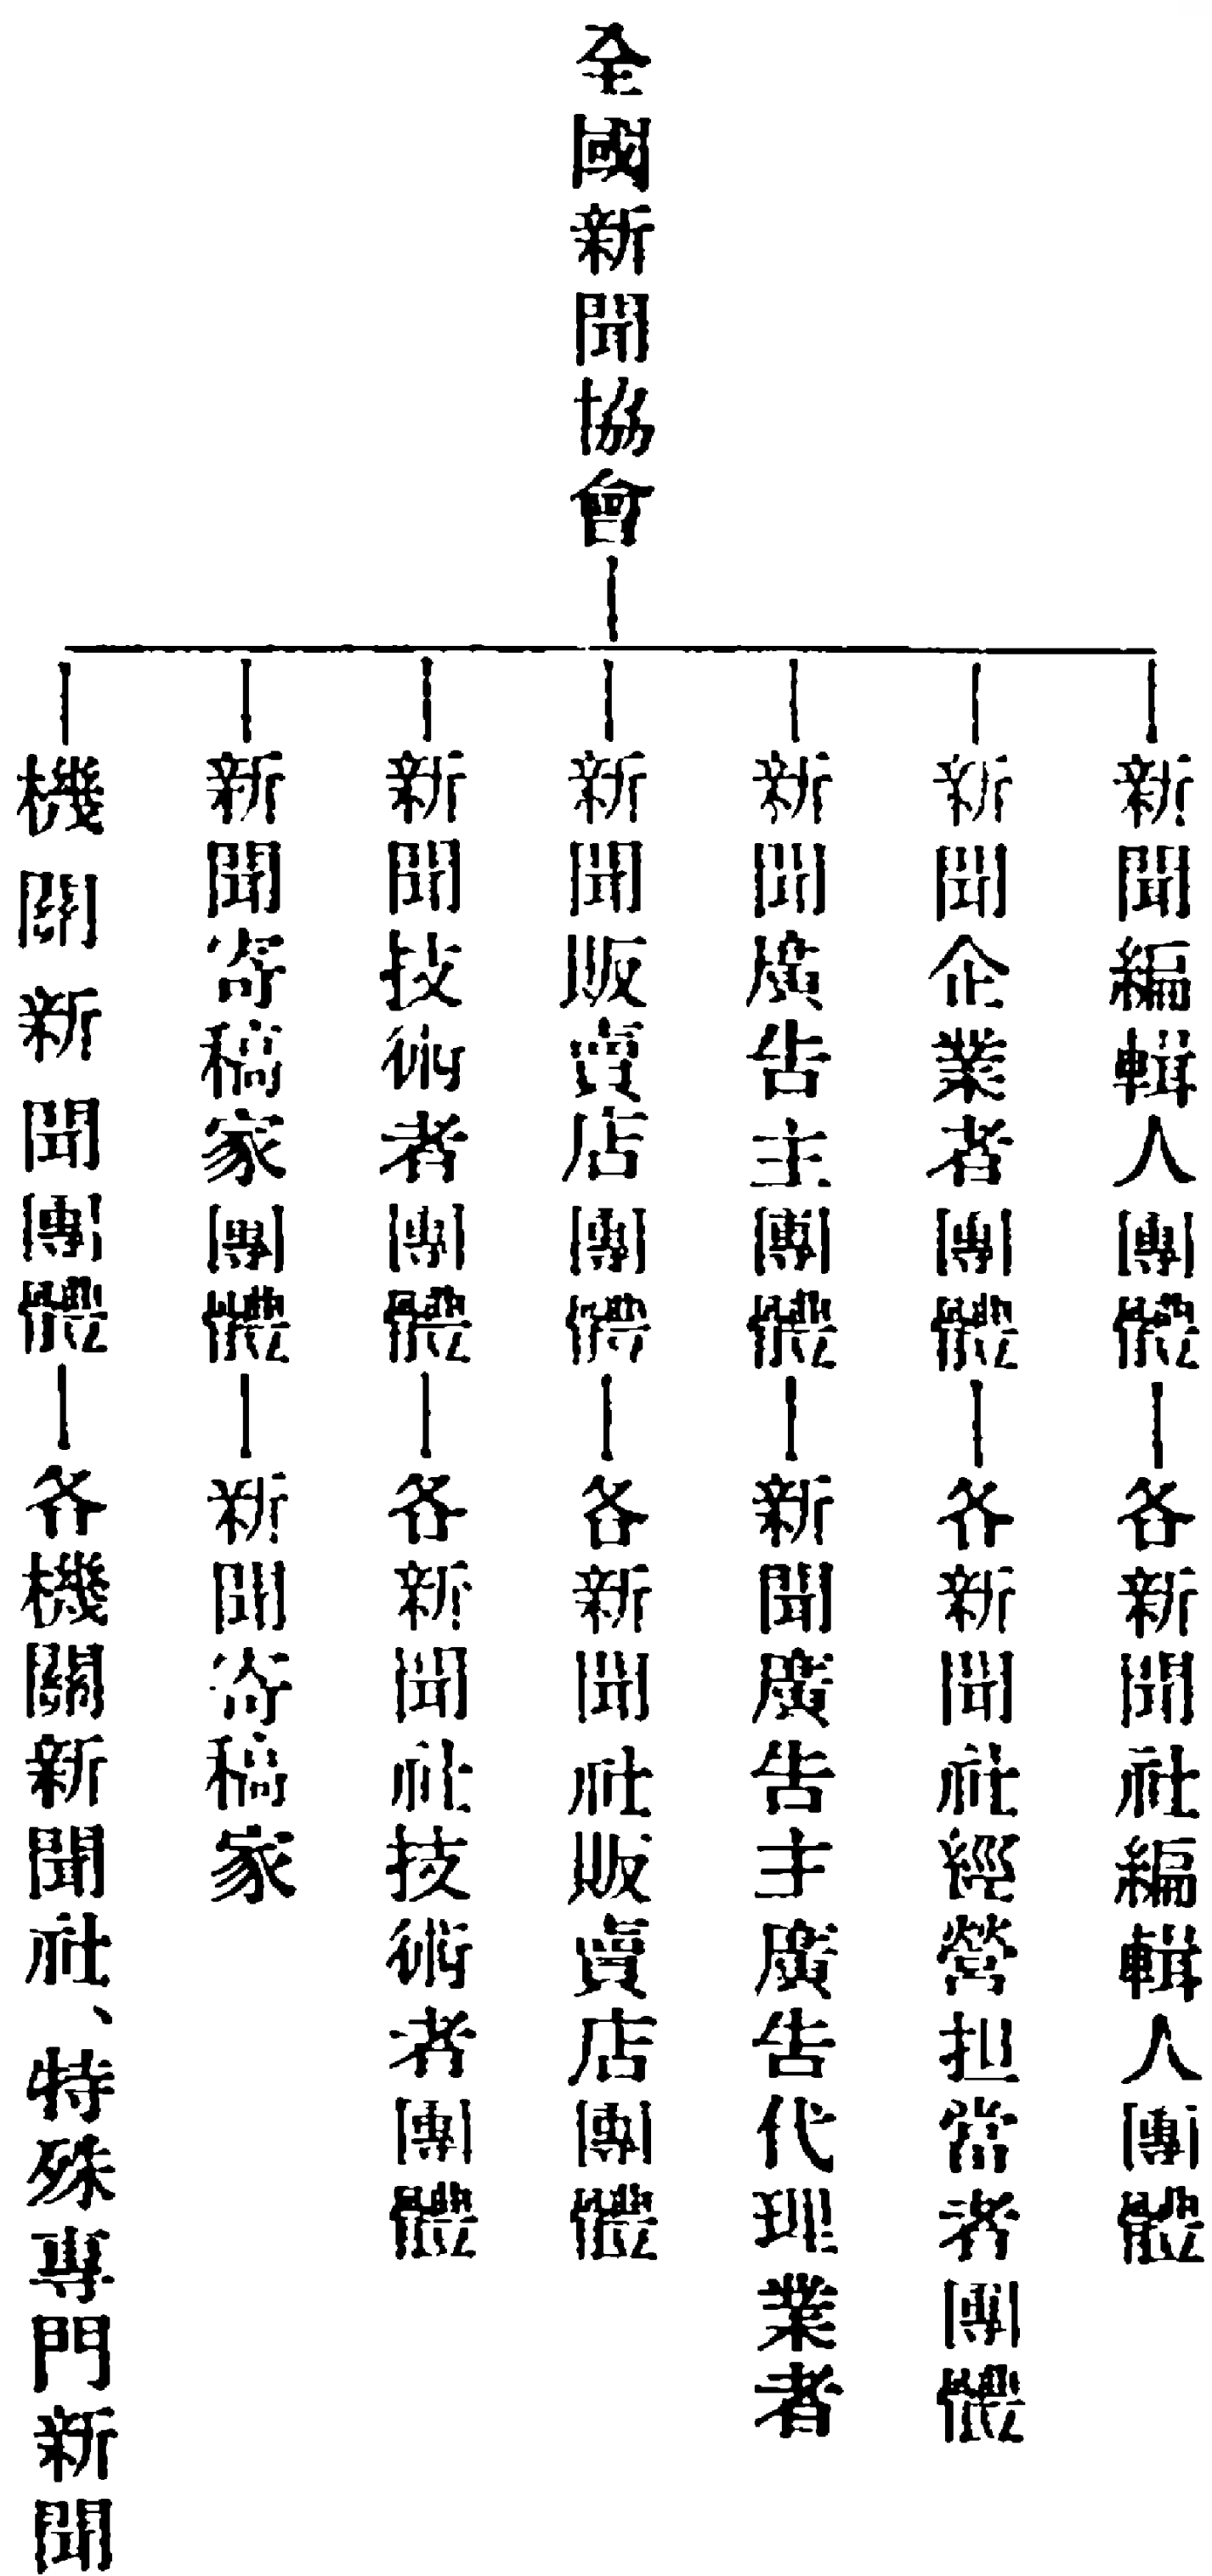 全國新聞協會
新聞編輯人團體
各新聞社編輯人團體
新聞企業者團體
各新聞社經營担當者團體
新聞廣告主團體
新聞廣告主廣告代理業者
新聞販賣店團體
各新聞社販賣店團體
新聞技術者團體
各新聞社技術者團體
新聞寄稿家團體
新聞寄稿家
機關新聞團體
各機關新聞社、特殊專門新聞